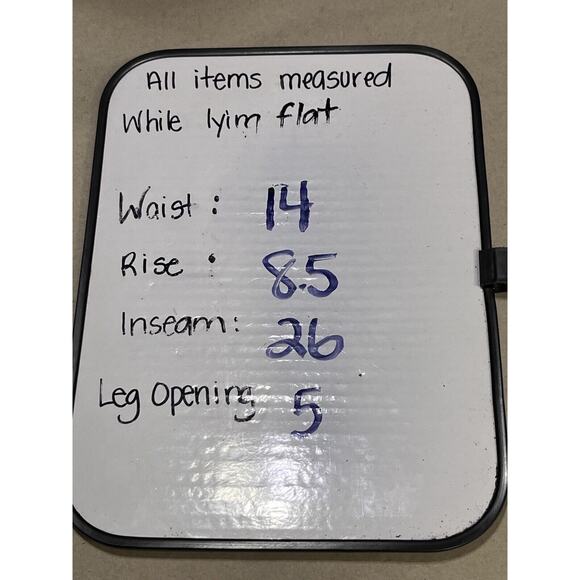 All items measured
While lyim flat
Waist : 14
Rise : 8.5
Inseam: 26
Leg Opening 5